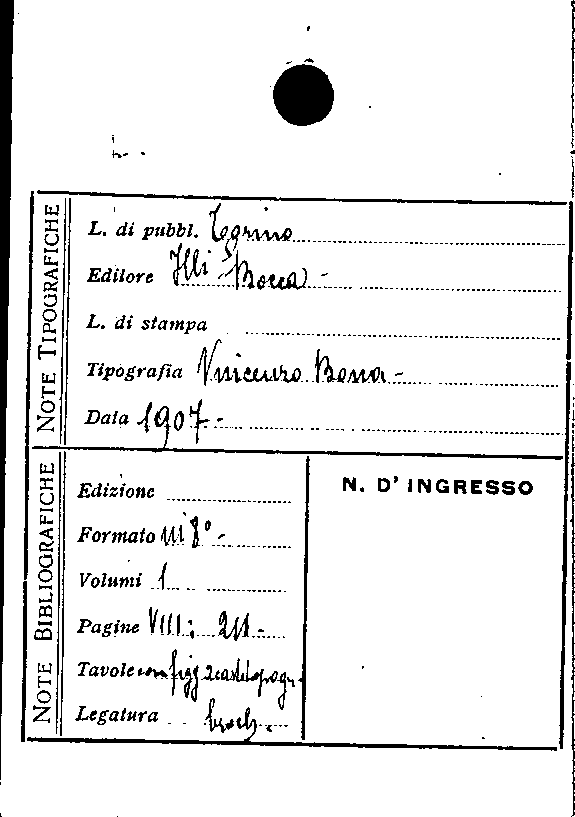 NOTE TIPOGRAFICHE
L. di pubbl. Torino
Editore Flli Bocca -
L. di stampa
Tipografia Vincenzo Bona -
Data 1907 -
NOTE BIBLIOGRAFICHE
Edizione
Formato in 8° -
Volumi 1
Pagine VIII; 211 -
Tavole con figg 2
Legatura broch.
N. D' INGRESSO